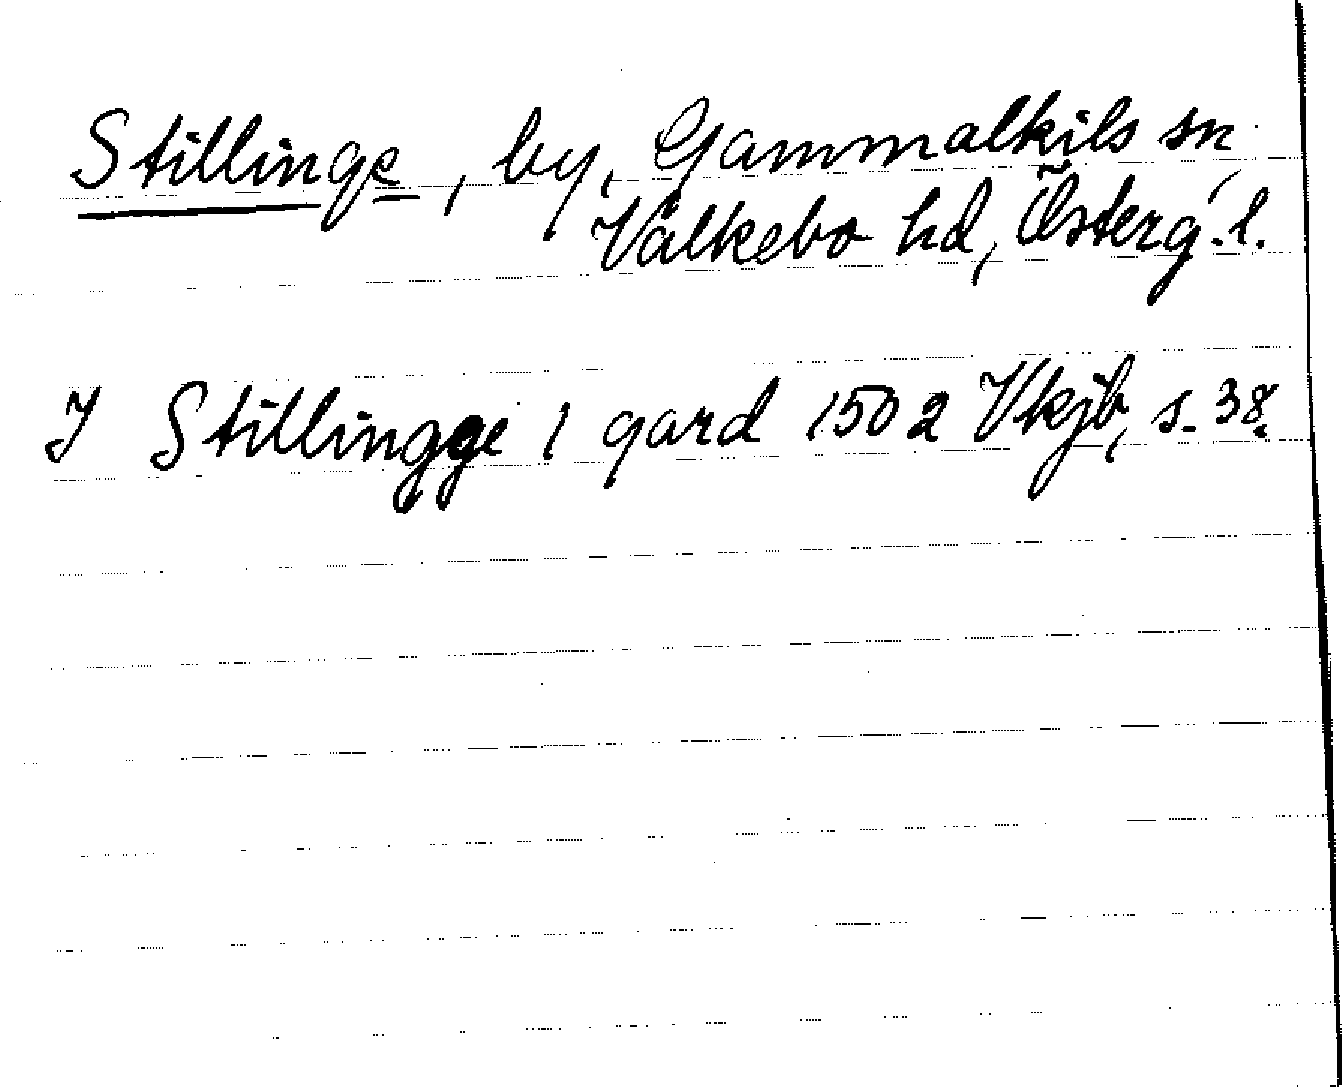 Stillinge, by, Gammalkils sn,
Valkebo hd, Österg. l.
I Stillingge 1 gard 1502 Vkjb, s. 38.